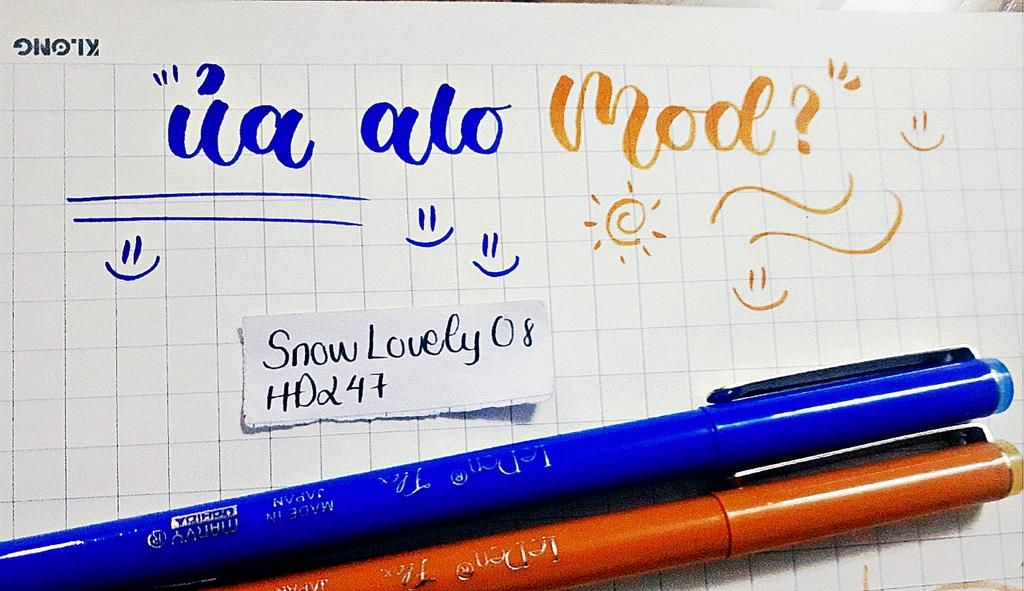 KLONG
"ủa alo Mod?"
Snow Lovely 08
HD247
LePen® Flex
MADE IN JAPAN
MARVY® UCHIDA
LePen® Flex
JAPAN